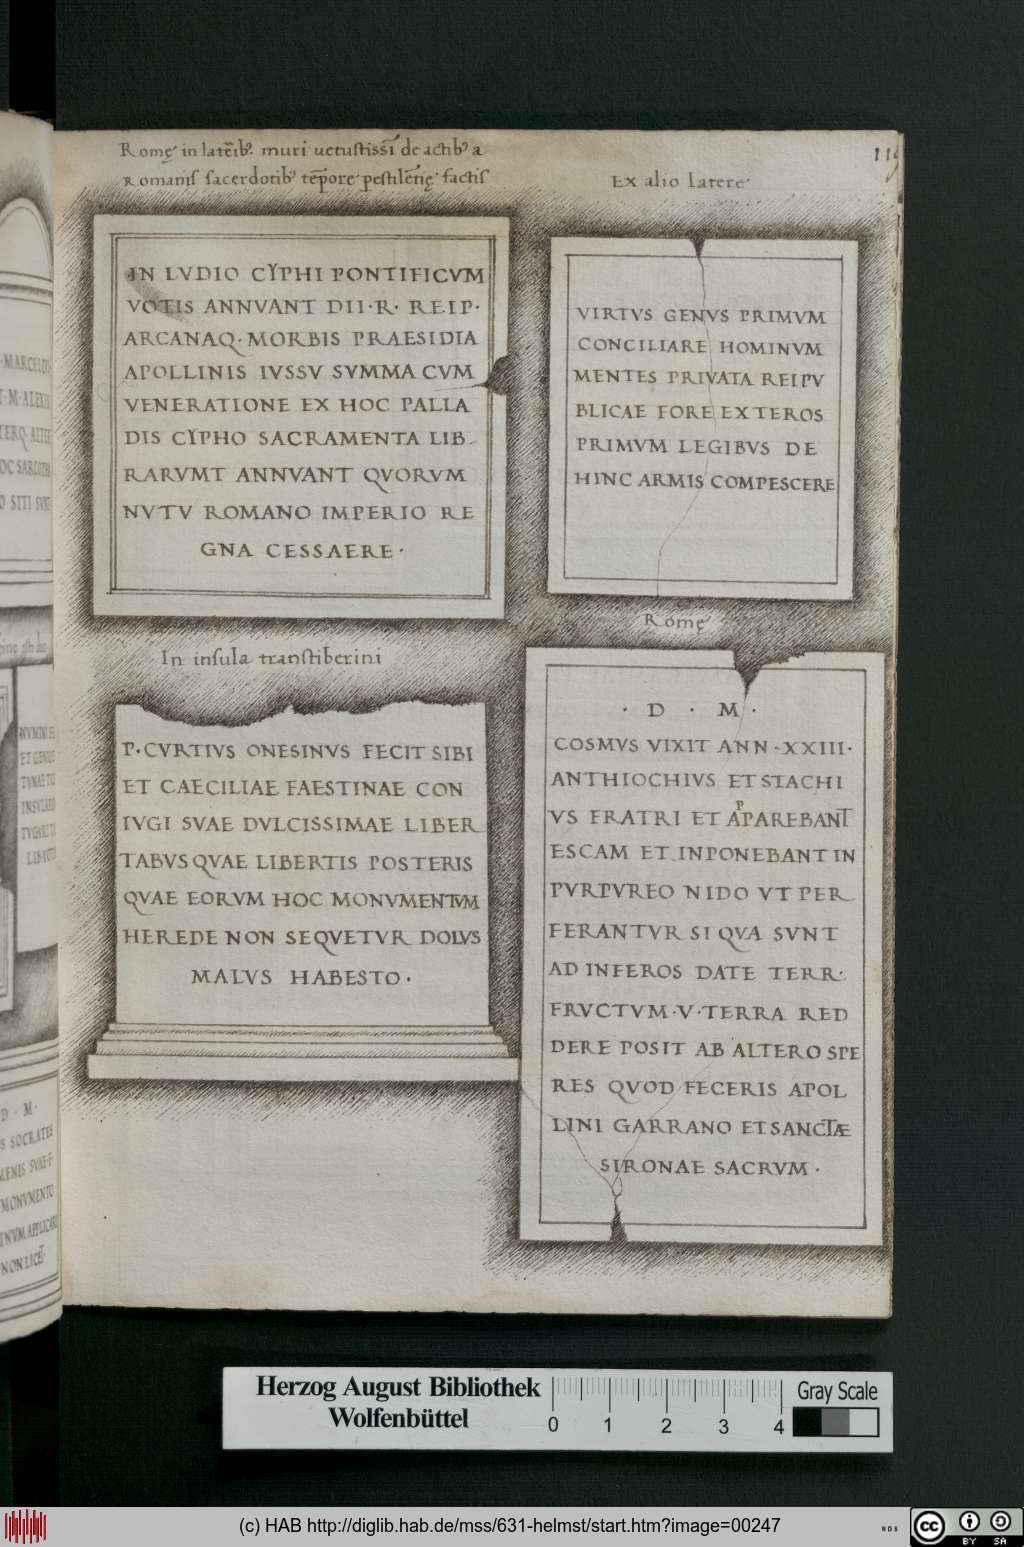 Romę in laterib9. muri uetustissi de actib9 a
Romanis sacerdotib9 tēpore pestilētię factis
IN LVDIO CYPHI PONTIFICVM
VOTIS ANNVANT DII·R· REIP·
ARCANAQ· MORBIS PRAESIDIA
APOLLINIS IVSSV SVMMA CVM
VENERATIONE EX HOC PALLA
DIS CYPHO SACRAMENTA LIB
RARVMT ANNVANT QVORVM
NVTV ROMANO IMPERIO RE
GNA CESSAERE·
Ex alio latere
VIRTVS GENVS PRIMVM
CONCILIARE HOMINVM
MENTES PRIVATA REIPV
BLICAE FORE EXTEROS
PRIMVM LEGIBVS DE
HINC ARMIS COMPESCERE
In insula transtiberini
P·CVRTIVS ONESINVS FECIT SIBI
ET CAECILIAE FAESTINAE CON
IVGI SVAE DVLCISSIMAE LIBER
TABVS QVAE LIBERTIS POSTERIS
QVAE EORVM HOC MONVMENTVM
HEREDE NON SEQVETVR DOLVS
MALVS HABESTO·
Romę
· D · M ·
COSMVS VIXIT ANN·XXIII·
ANTHIOCHIVS ET STACHI
VS FRATRI ET APPAREBANT
ESCAM ET INPONEBANT IN
PVRPVREO NIDO VT PER
FERANTVR SI QVA SVNT
AD INFEROS DATE TERR·
FRVCTVM·V·TERRA RED
DERE POSIT AB ALTERO SPE
RES QVOD FECERIS APOL
LINI GARRANO ET SANCTÆ
SIRONAE SACRVM ·
Herzog August Bibliothek
Wolfenbüttel
0 1 2 3 4
Gray Scale
(c) HAB http://diglib.hab.de/mss/631-helmst/start.htm?image=00247
WDB
cc BY SA